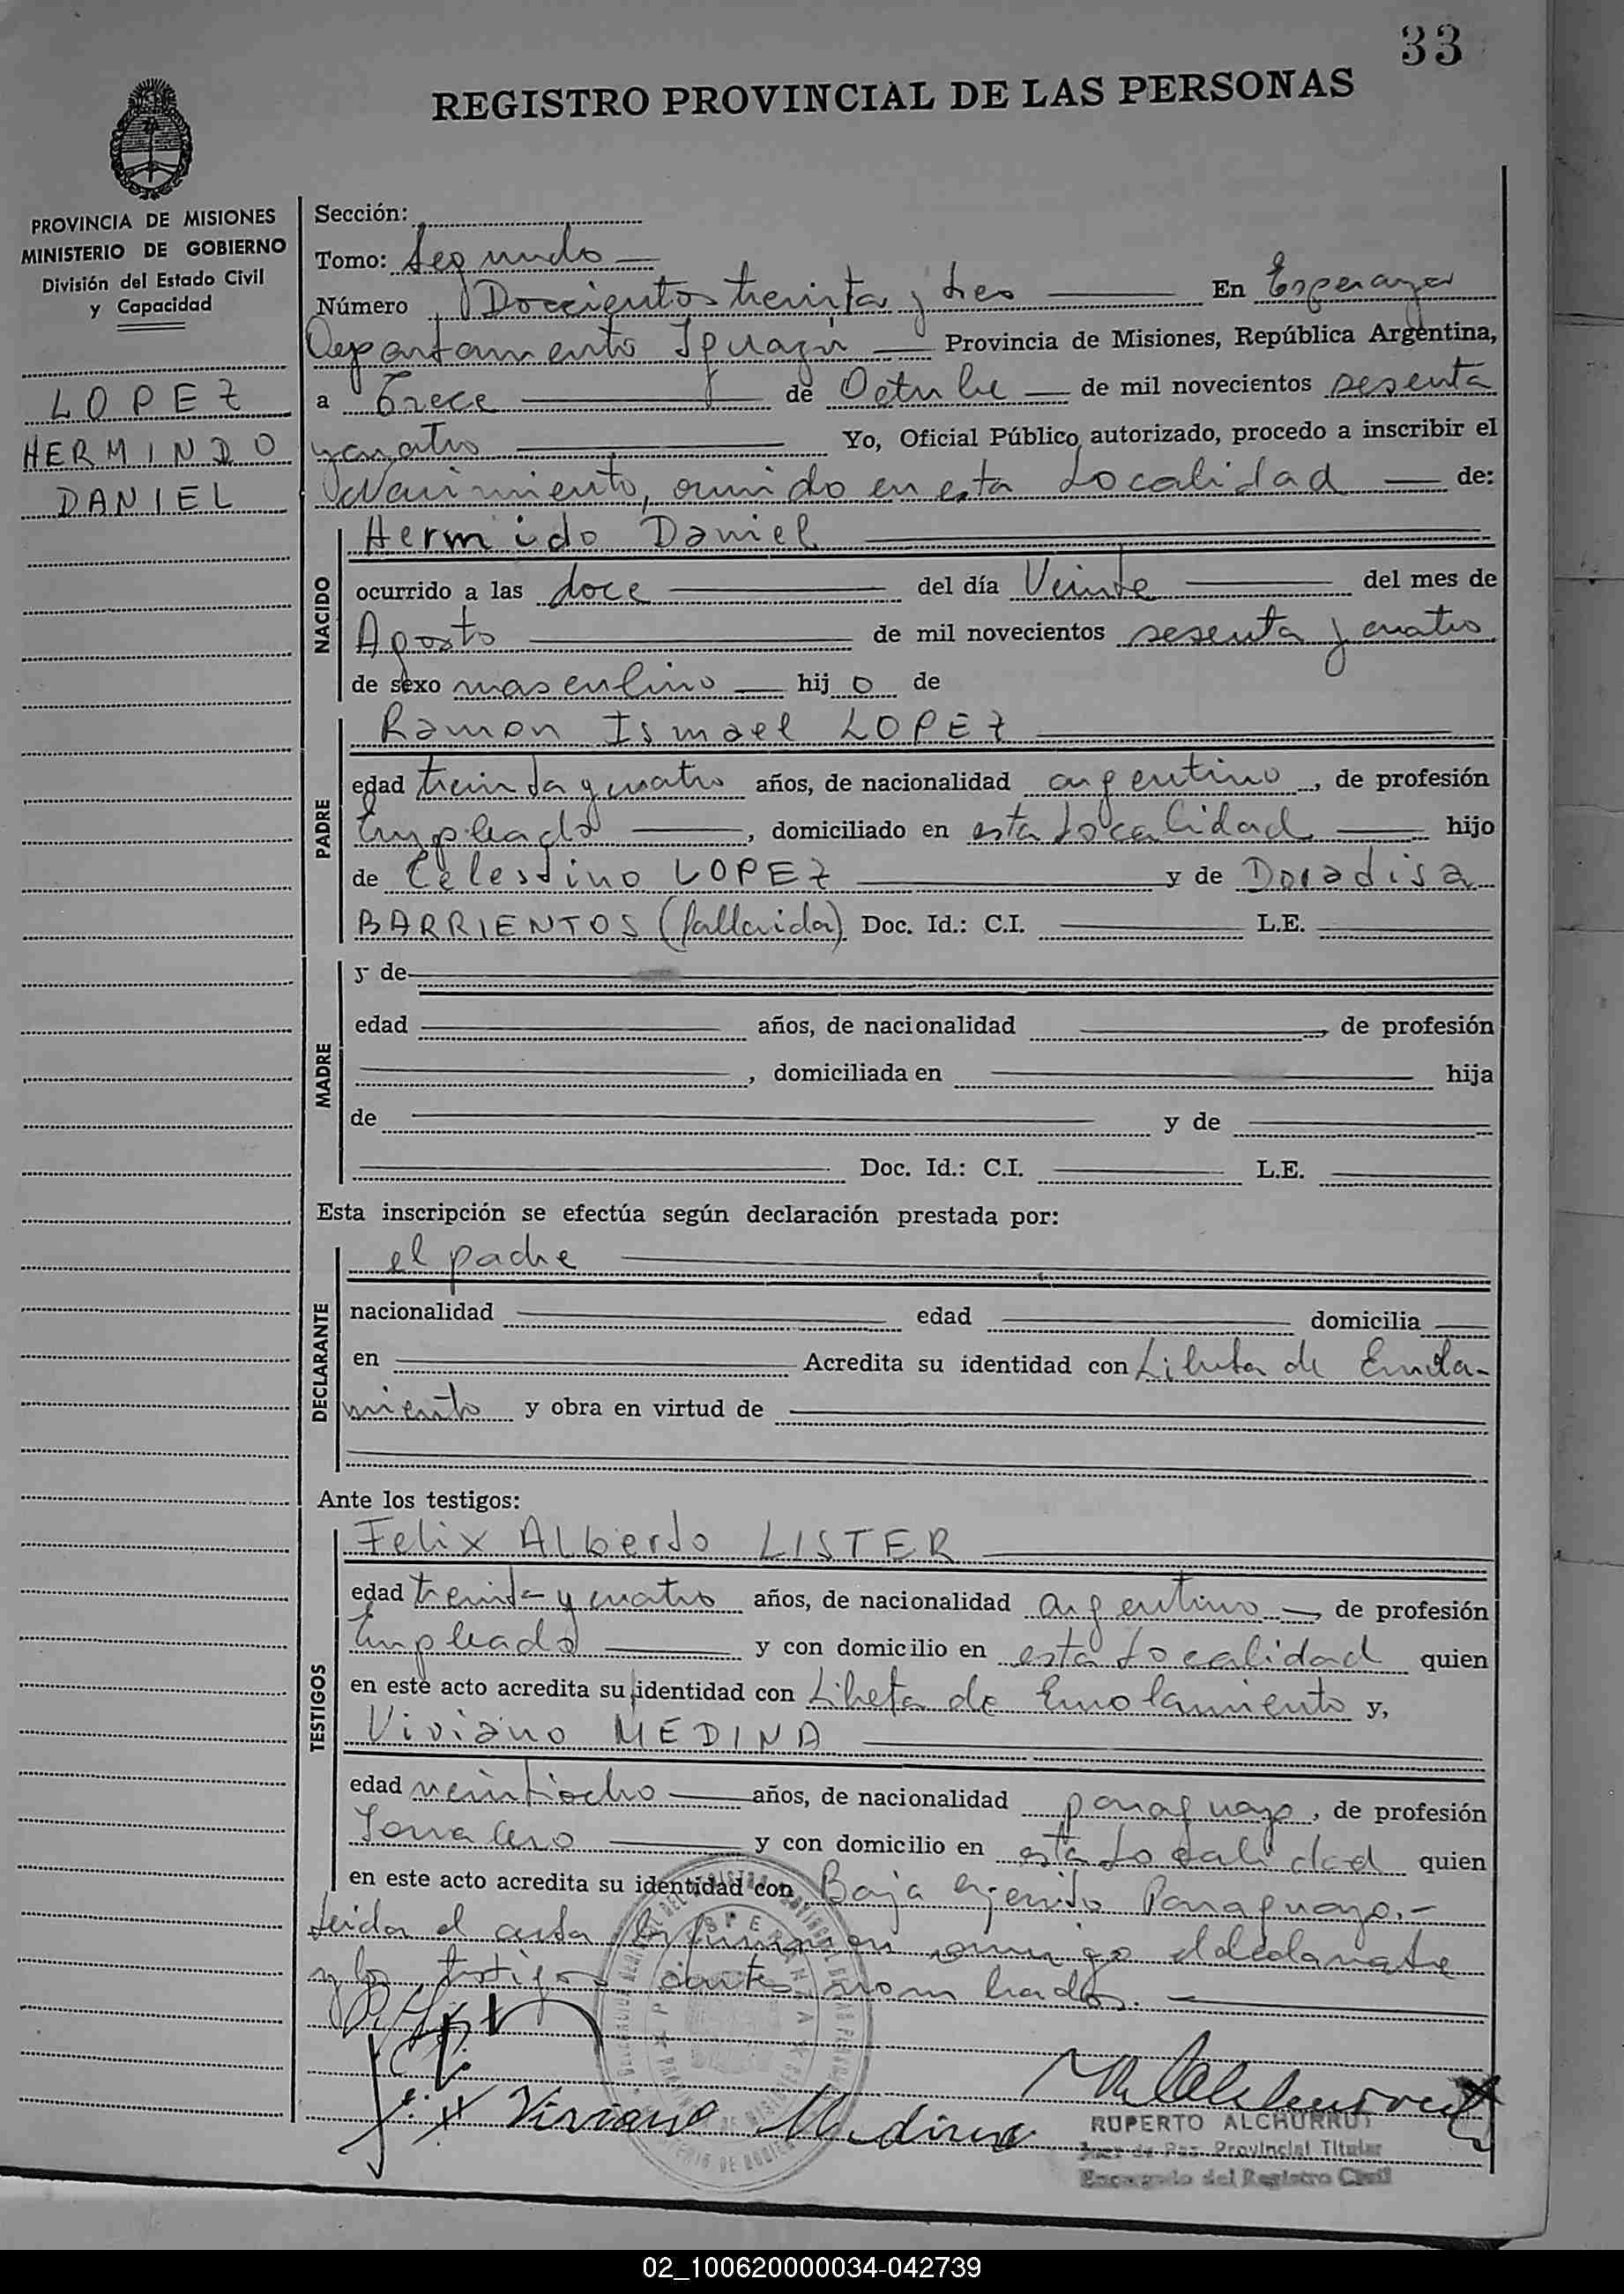 33
REGISTRO PROVINCIAL DE LAS PERSONAS
PROVINCIA DE MISIONES
MINISTERIO DE GOBIERNO
División del Estado Civil
y Capacidad
LOPEZ
HERMINDO
DANIEL
Sección:
Tomo: Segundo
Número Doscientos treinta y tres En Esperanza
Departamento Iguazú Provincia de Misiones, República Argentina,
a Trece de Octubre de mil novecientos sesenta
y cuatro Yo, Oficial Público autorizado, procedo a inscribir el
Nacimiento, ocurrido en esta Localidad de:
NACIDO
Hermido Daniel
ocurrido a las doce del día Veinte del mes de
Agosto de mil novecientos sesenta y cuatro
de sexo masculino hij o de
PADRE
Ramon Ismael LOPEZ
edad treinta y cuatro años, de nacionalidad argentino, de profesión
Empleado, domiciliado en esta Localidad hijo
de Celestino LOPEZ y de Doradisa
BARRIENTOS (fallecida) Doc. Id.: C.I. L.E.
MADRE
y de
edad años, de nacionalidad , de profesión
, domiciliada en hija
de y de
Doc. Id.: C.I. L.E.
Esta inscripción se efectúa según declaración prestada por:
DECLARANTE
el padre
nacionalidad edad domicilia
en Acredita su identidad con Libreta de Enrola-
miento y obra en virtud de
Ante los testigos:
TESTIGOS
Felix Alberto LISTER
edad treinta y cuatro años, de nacionalidad argentino, de profesión
Empleado y con domicilio en esta Localidad quien
en este acto acredita su identidad con Libreta de Enrolamiento y,
Viviano MEDINA
edad veintiocho años, de nacionalidad paraguayo, de profesión
y con domicilio en esta Localidad quien
en este acto acredita su identidad con Baja Ejercito Paraguayo.-
Leida el acta la firman conmigo el declarante
y los testigos antes nombrados.
Viviano Medina
RUPERTO ALCHURRUT
Juez de Paz Provincial Titular
Encargado del Registro Civil
02_100620000034-042739